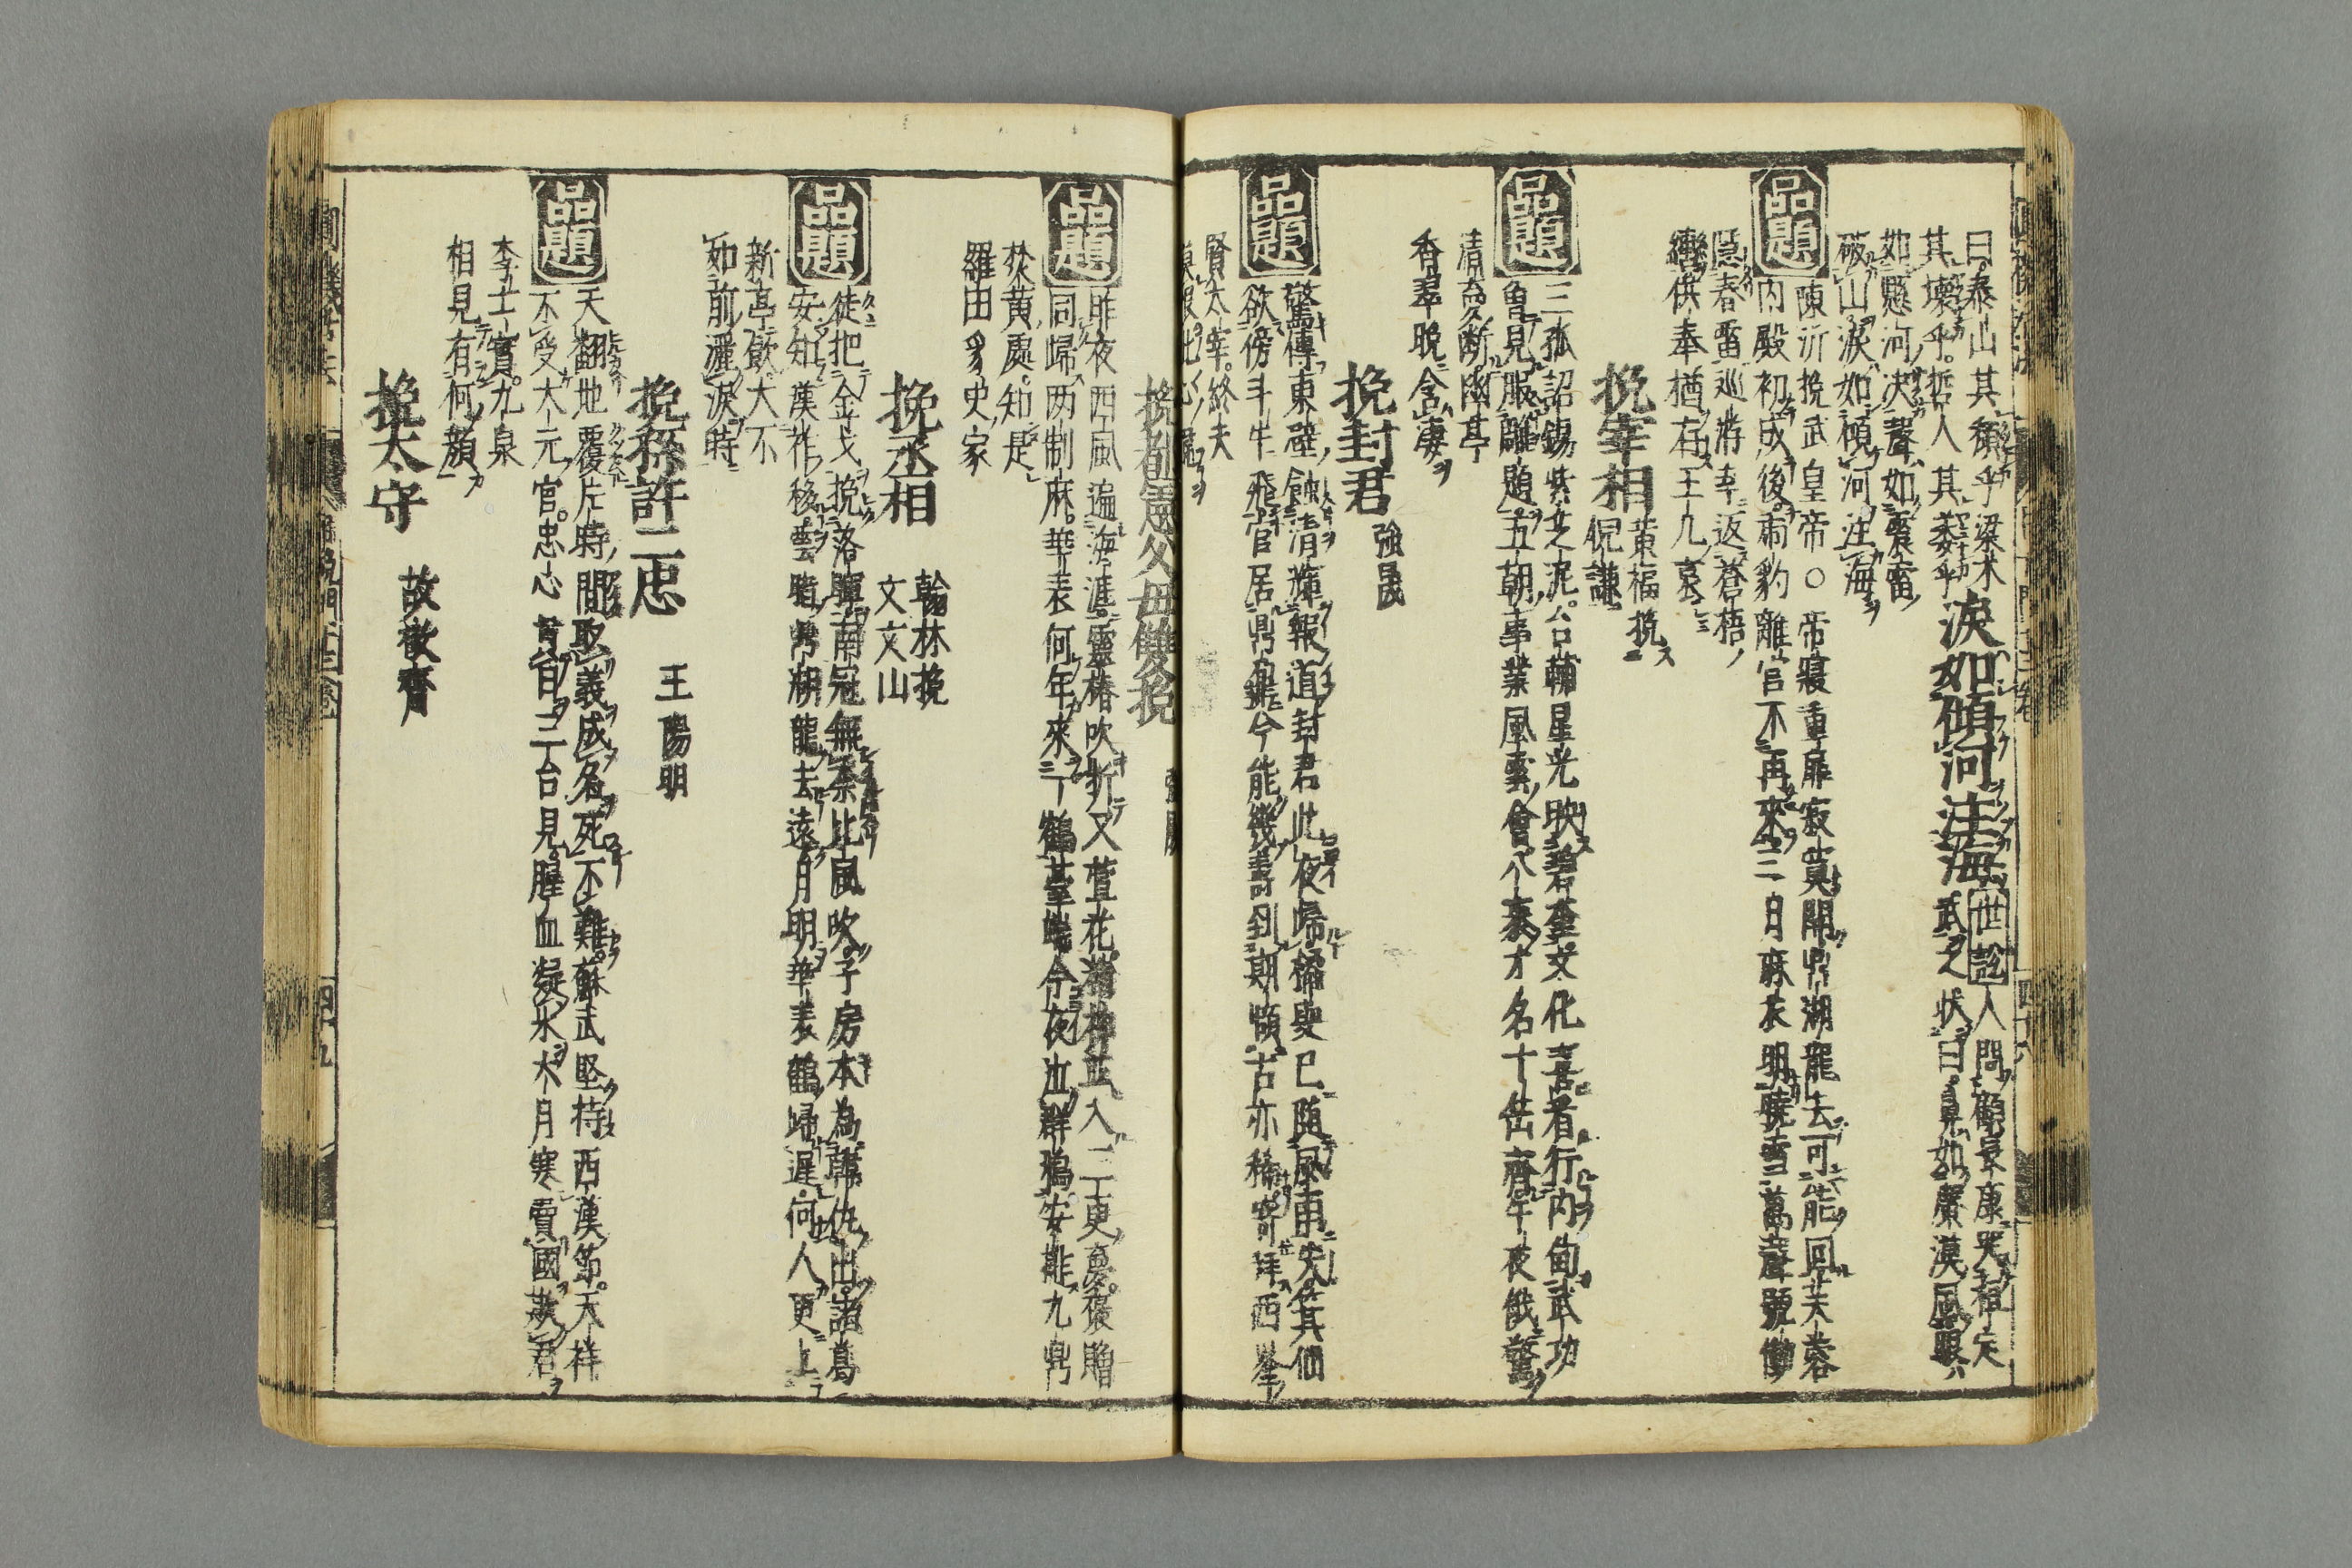 曰泰山其頽乎梁木
其壞乎哲人其萎乎
淚如傾河注海
世說
人問顧長康哭桓宣
武之状曰鼻如廣漠風眼
如懸河决聲如震雷
破山淚如傾河注海
品題
陳沂挽武皇帝○帝寢重扉寂寞開鼎湖龍去可能回芙蓉
内殿初成後虎豹離宮不再來三月麻衣明曉雪萬聲號慟
隠春雷巡將幸返蒼梧
轡供奉猶有王几哀
挽宰相
黃福挽
倪謙
品題
三孤詔錫紫芝泥台輔星光映碧奎文化喜看行内甸武功
曽見服雕題五朝事業風雲會八袠才名十岳齊午夜俄驚
清夢断幽亭
香翠晚含凄
挽封君
強晟
品題
驚傳東壁蝕清輝報道封君此夜歸橘叟已随風雨失箕仙
欲傍斗牛飛官居鼎鼐今能幾壽到期頥古亦稀寄拜西峯
賢太宰終天
挽都憲父母雙挽
品題
昨夜西風遍海涯靈椿吹折又萱花瀟梓並入三更夢褒贈
同歸两制麻華表何年來一鶴臺端今夜泣群鴉安排九鼎
焚黃處知是
羅田豸史家
挽丞相
翰林挽
文文山
品題
徒把金戈挽落暉南冠無柰北風吹子房本為韓仇出諸葛
安知漢祚移雲暗鼎湖龍去遠月明華表鶴歸遲何人更上
新亭飲大不
如前灑淚時
挽孫許二忠
王陽明
品題
天翻地覆片時間取義成名死不難蘇武堅持西漢節天祥
不受大元官忠心貫日三台見腥血凝氷六月寒賣國欺君
李士實九泉
相見有何顔
挽太守
故徽齊
四十九